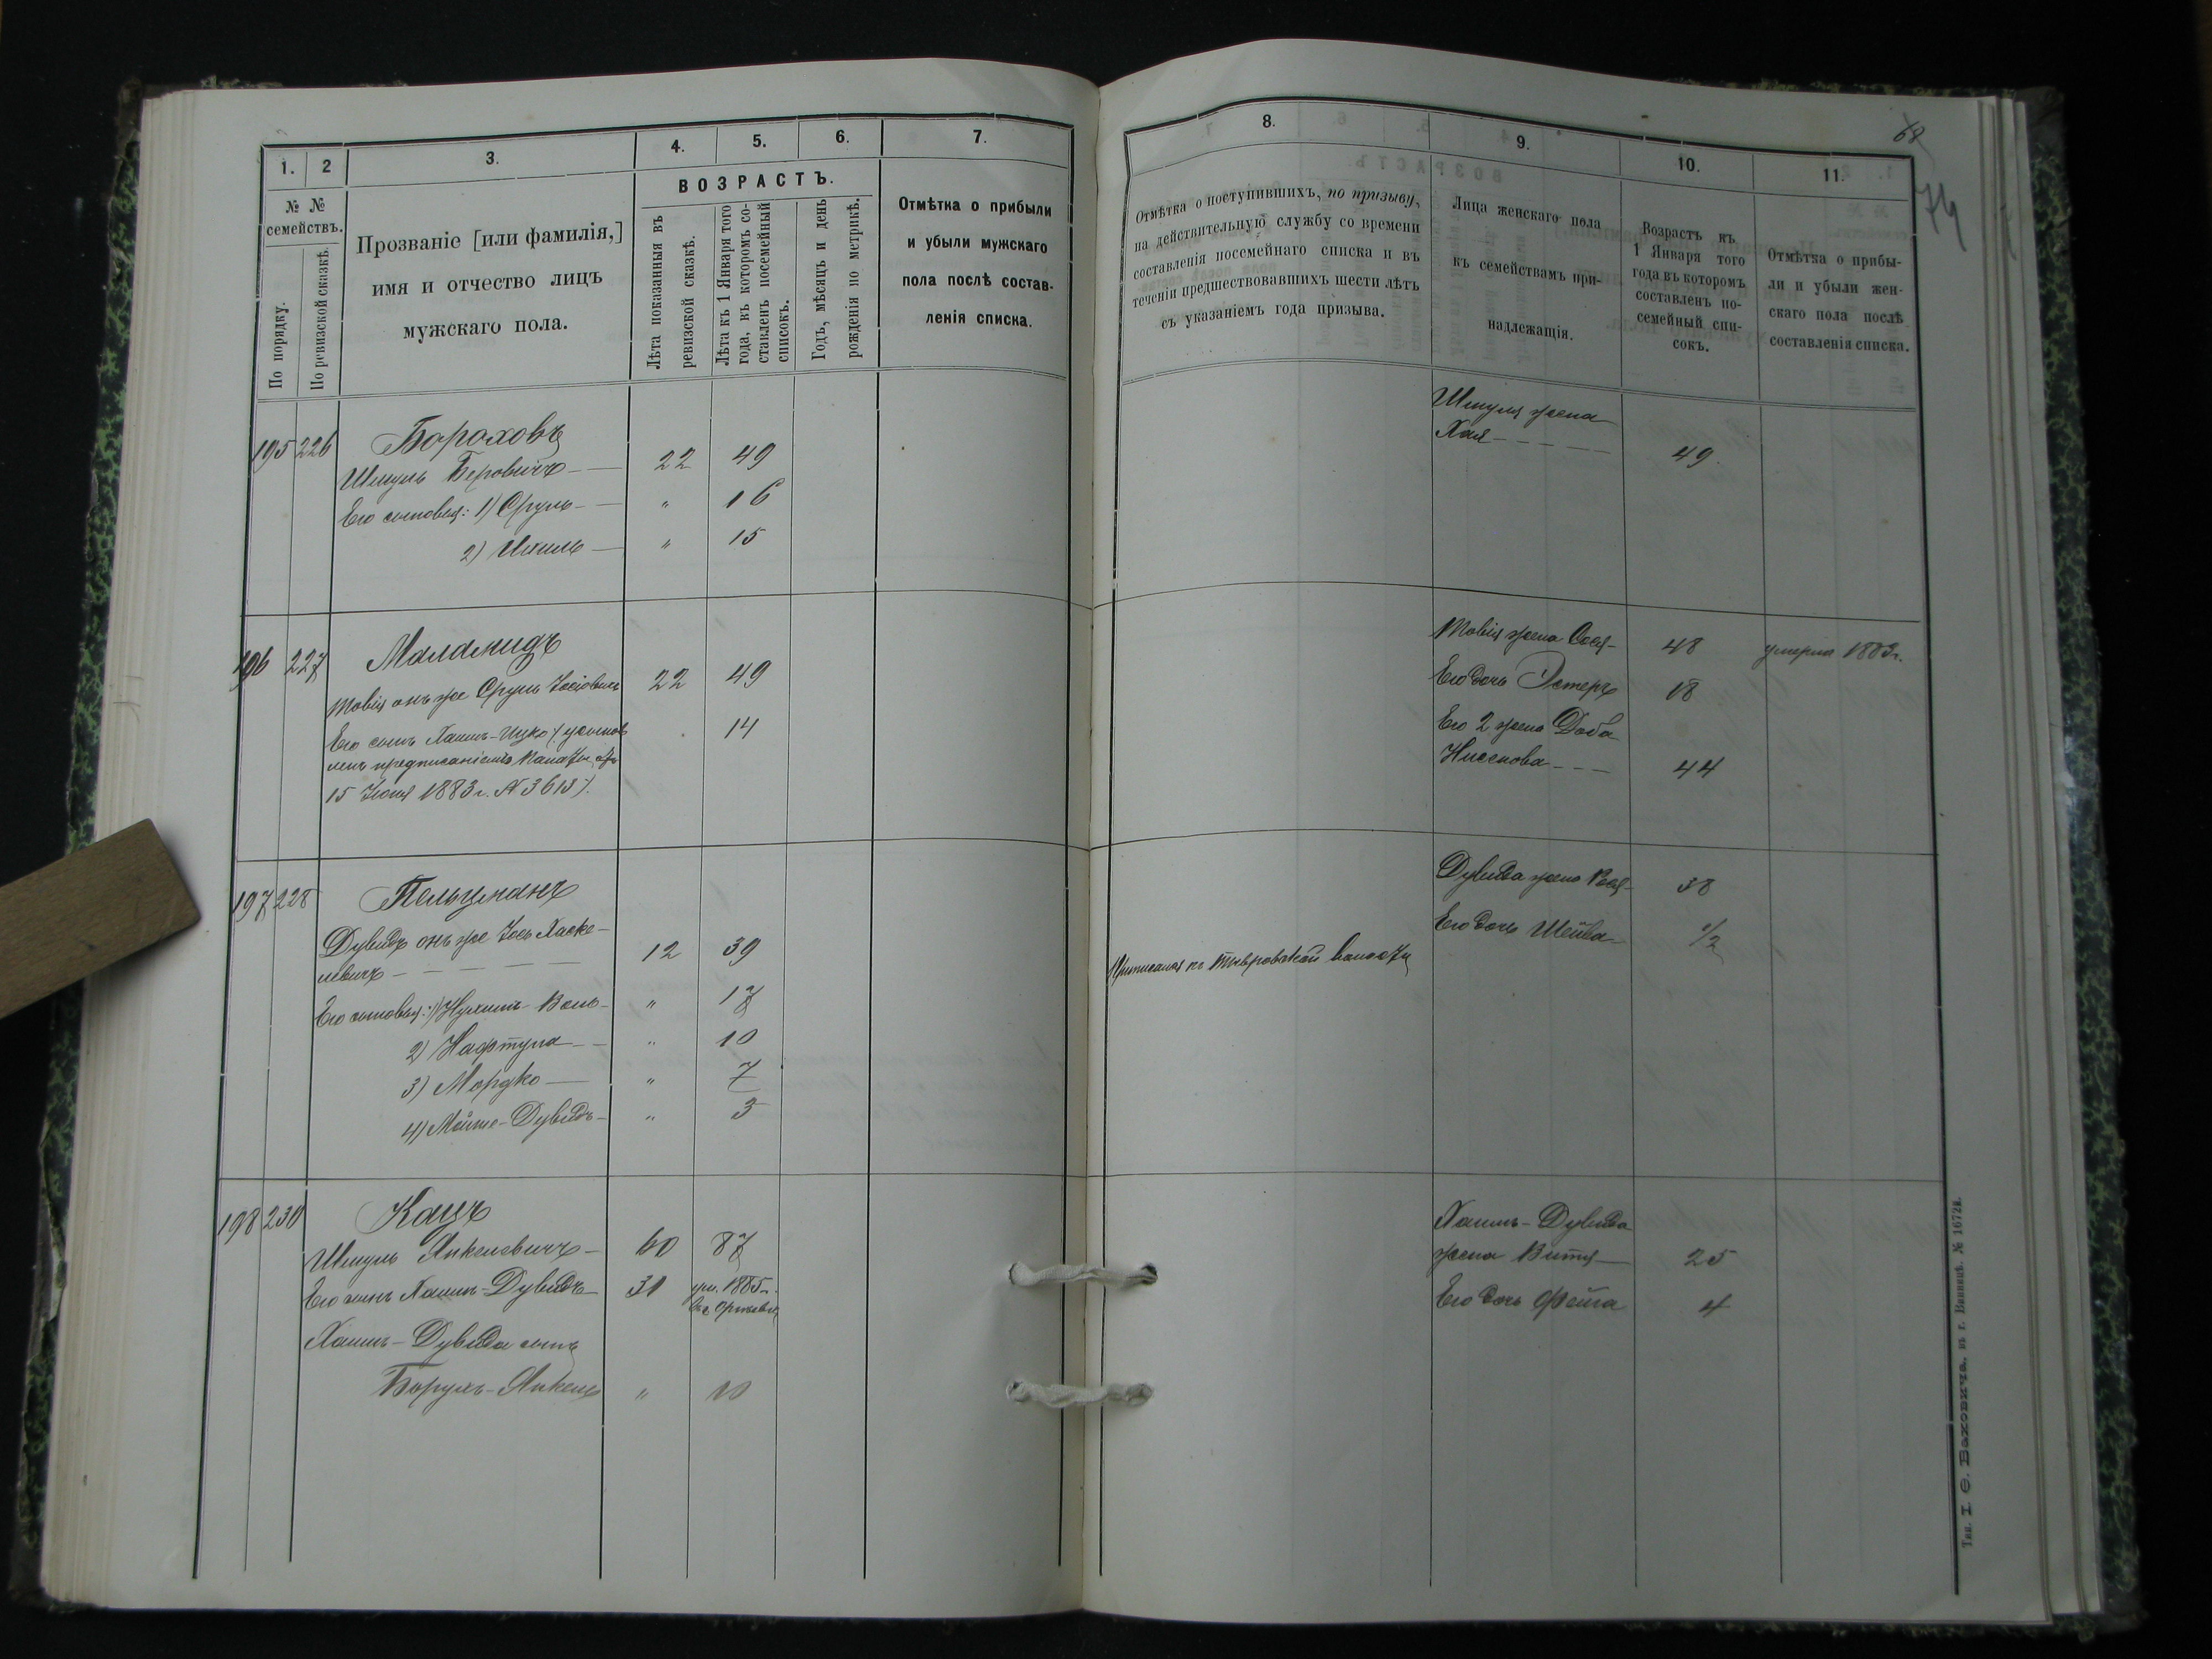 1.
2
3.
4.
5.
6.
7.
№ №
семействъ.
По порядку.
По ревизской сказкѣ.
Прозваніе [или фамилія,]
имя и отчество лицъ
мужскаго пола.
ВОЗРАСТЪ.
Лѣта показанныя въ
ревизской сказкѣ.
Лѣта къ 1 Января того
года, въ которомъ со-
ставленъ посемейный
списокъ.
Годъ, мѣсяцъ и день
рожденія по метрикѣ.
Отмѣтка о прибыли
и убыли мужскаго
пола послѣ состав-
ленія списка.
195 226 Бороховъ
Шмуль Беровичъ 22 49
Его сыновья: 1) Сруль " 16
2) Ихиль " 15
196 227 Маламидъ
Товія онъ же Сруль Іосіовичъ 22 49
Его сынъ Хаимъ-Ицко (усынов 14
ленъ предписаніемъ Палаты отъ
15 Іюня 1883 г. №3615).
197 228 Пельцманъ
Дувидъ онъ же Іось Хаске-
левичъ 12 39
Его сыновья: 1) Нухимъ-Воль " 17
2) Нафтула " 10
3) Мордко " 7
4) Мойше-Дувидъ " 3
198 230 Кацъ
Шмуль Янкелевичъ 60 87
Его сынъ Хаимъ-Дувидъ 31 ум. 1885 г.
Хаимъ-Дувида сынъ
Борухъ-Янкель " 10
8.
9.
10.
11.
68
74
Отмѣтка о поступившихъ, по призыву,
на дѣйствительную службу со времени
составленія посемейнаго списка и въ
теченіи предшествовавшихъ шести лѣтъ
съ указаніемъ года призыва.
Лица женскаго пола
къ семействамъ при-
надлежащія.
Возрастъ къ
1 Января того
года въ которомъ
составленъ по-
семейный спи-
сокъ.
Отмѣтка о прибы-
ли и убыли жен-
скаго пола послѣ
составленія списка.
Шмуля жена
Хая 49
Товія жена Сося 48 умерла 1883 г.
Его дочь Эстеръ 18
Его 2 жена Доба
Нисенова 44
Дувида жена Рося 38
Его дочь Шейва 1/2
Приписанъ къ Тывровской волости
Хаимъ-Дувида
жена Витя 25
Его дочь Фейга 4
Тип. І. Ѳ. Баховича, въ г. Винницѣ. № 1672я.